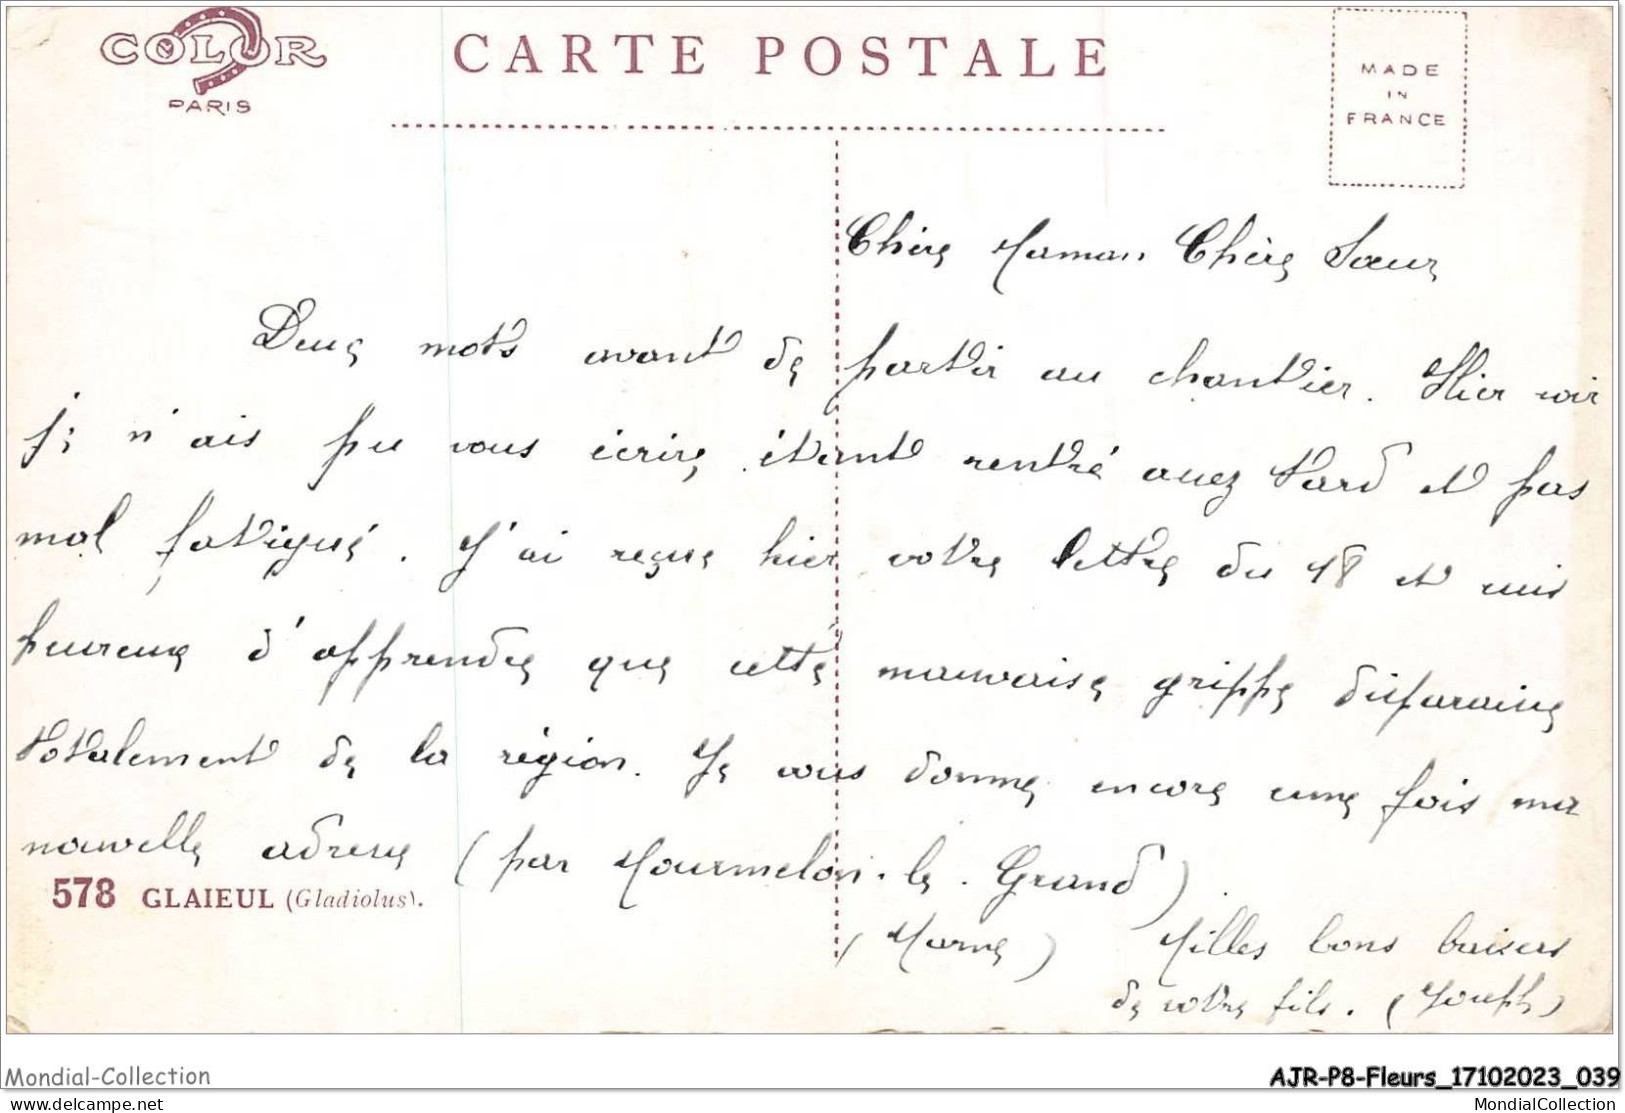 COLOR
PARIS
CARTE POSTALE
MADE
IN
FRANCE
Chère Maman Chère Sœur
Deux mots avant de partir au chantier. Hier soir
je n'ais pu vous écrire étant rentré assez tard et pas
mal fatigué. J'ai reçue hier votre lettre du 18 et suis
heureux d'apprendre que cette mauvaise grippe disparaisse
totalement de la région. Je vous donne encore une fois ma
nouvelle adresse (par Mourmelon-le-Grand)
578 GLAIEUL (Gladiolus).
(Marne) Milles bons baisers
de votre fils. (Joseph)
Mondial-Collection
AJR-P8-Fleurs_17102023_039
www.delcampe.net
MondialCollection